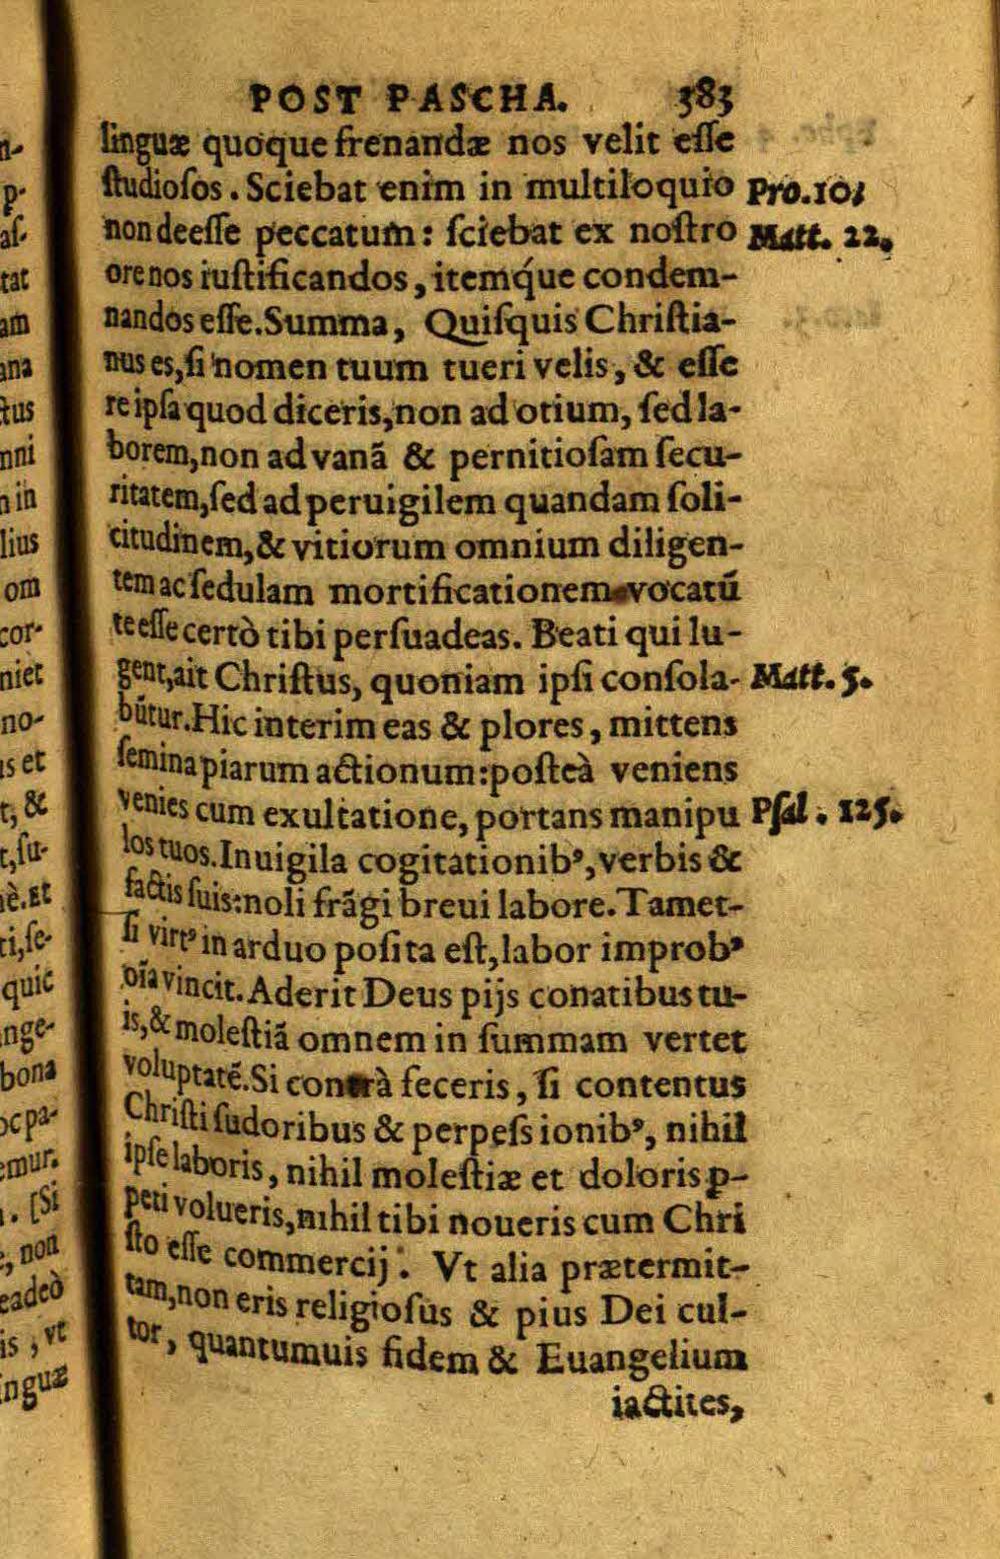 POST PASCHA. 383
linguæ quoque frenandæ nos velit eſſe
ſtudioſos. Sciebat enim in multiloquio Pro.10,
non deeſſe peccatum: ſciebat ex noſtro Matt. 22.
ore nos iuſtificandos, itemq́ue condem-
nandos eſſe. Summa, Quiſquis Chriſtia-
nus es, ſi nomen tuum tueri velis, & eſſe
re ipſa quod diceris, non ad otium, ſed la-
borem, non ad vanã & pernitioſam ſecu-
ritatem, ſed ad peruigilem quandam ſoli-
citudinem, & vitiorum omnium diligen-
tem ac ſedulam mortificationem vocatũ
te eſſe certò tibi perſuadeas. Beati qui lu-
gent, ait Chriſtus, quoniam ipſi conſola- Matt. 5.
bũtur. Hic interim eas & plores, mittens
ſemina piarum actionum: poſteà veniens
venies cum exultatione, portans manipu Pſal. 125.
los tuos. Inuigila cogitationibꝰ, verbis &
factis ſuis: noli frãgi breui labore. Tamet-
ſi virtꝰ in arduo poſita eſt, labor improbꝰ
oĩa vincit. Aderit Deus pijs conatibus tu-
is, & moleſtiã omnem in ſummam vertet
voluptatẽ. Si contrà feceris, ſi contentus
Chriſti ſudoribus & perpeſsionibꝰ, nihil
ipſe laboris, nihil moleſtiæ et doloris ꝑ-
peti volueris, nihil tibi noueris cum Chri
ſto eſſe commercij. Vt alia prætermit-
tam, non eris religioſus & pius Dei cul-
tor, quantumuis fidem & Euangelium
iactites,
n-
p-
aſ-
tat
am
ana
ctus
nni
n in
lius
om
cor-
niet
no-
is et
t, &
t, ſu-
è. Et
ti, ſe-
quic
nge-
bona
oc pa-
emur.
. [Si
, non
eadeò
is, vt
inguæ